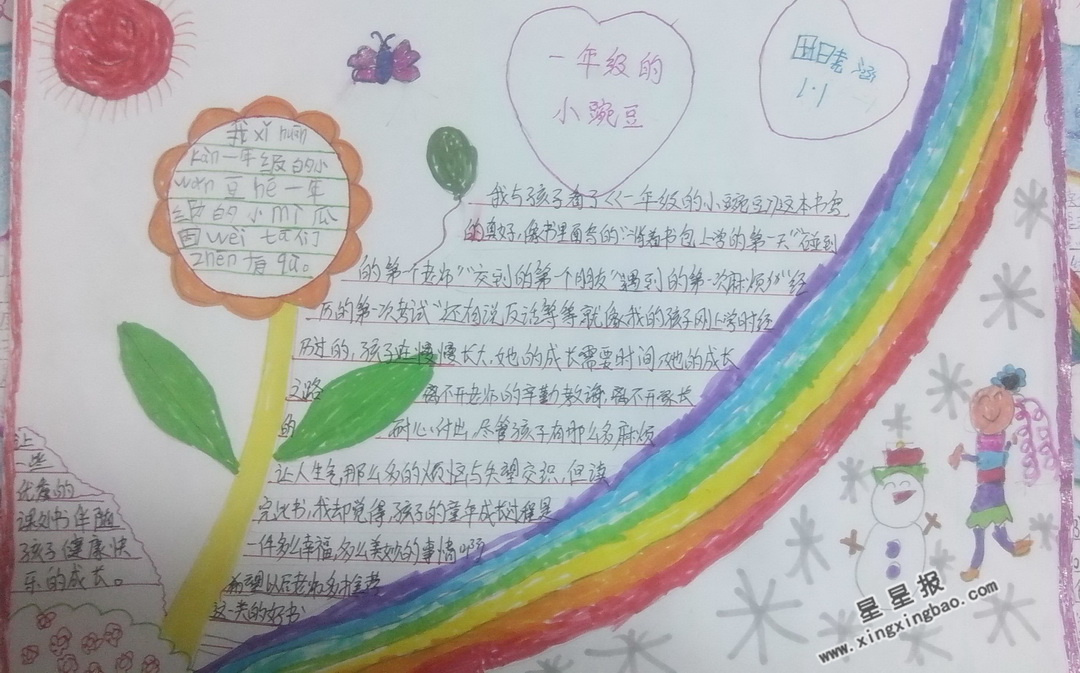 一年级的
小豌豆
田日
1.1
我xǐ huān
kàn一年级的小
wān豆hé一年
级的小mì瓜
因wèi tā们
zhēn有qù。
我与孩子看了《一年级的小豌豆》这本书写
的真好,像书里面写的:"背着书包上学的第一天"碰到
的第一个老师""交到的第一个朋友"遇到的第一次麻烦""经
历的第一次考试"还有说反话等等就像我的孩子刚上学时经
历过的,孩子在慢慢长大,她的成长需要时间,她的成长
之路 离不开老师的辛勤教诲,离不开家长
的 耐心付出,尽管孩子有那么多麻烦
让人生气,那么多的烦恼与失望交织,但读
完此书,我却觉得,孩子的童年成长过程是
一件多么幸福,多么美妙的事情啊
希望以后老师多推荐
这一类的好书
让
一些
优秀的
课外书伴随
孩子健康快
乐的成长。
星星报
www.xingxingbao.com